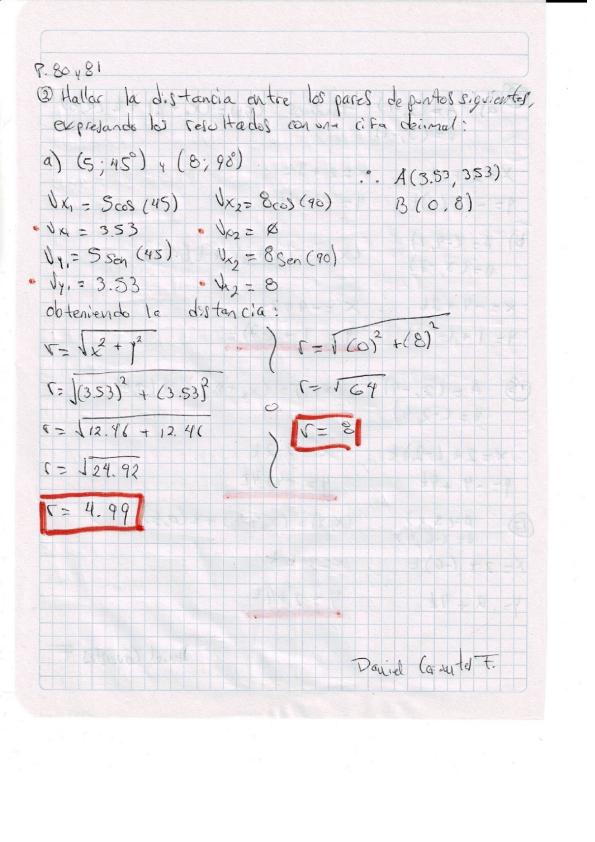 P. 80 y 81
② Hallar la distancia entre los pares de puntos siguientes,
expresando los resultados con una cifra decimal:
a) (5; 45°) y (8; 90°)
Vx₁ = 5cos (45)
Vx₁ = 3.53
Vy₁ = 5 sen (45)
Vy₁ = 3.53
Vx₂ = 8cos (90)
Vx₂ = 0
Vx₂ = 8 sen (90)
Vx₂ = 8
∴ A(3.53, 353)
B (0, 8)
obteniendo la distancia:
r = √x² + y²
r = √(3.53)² + (3.53)²
r = √12.46 + 12.46
r = √24.92
r = 4.99
o
r = √(0)² + (8)²
r = √64
r = 8
Daniel F.